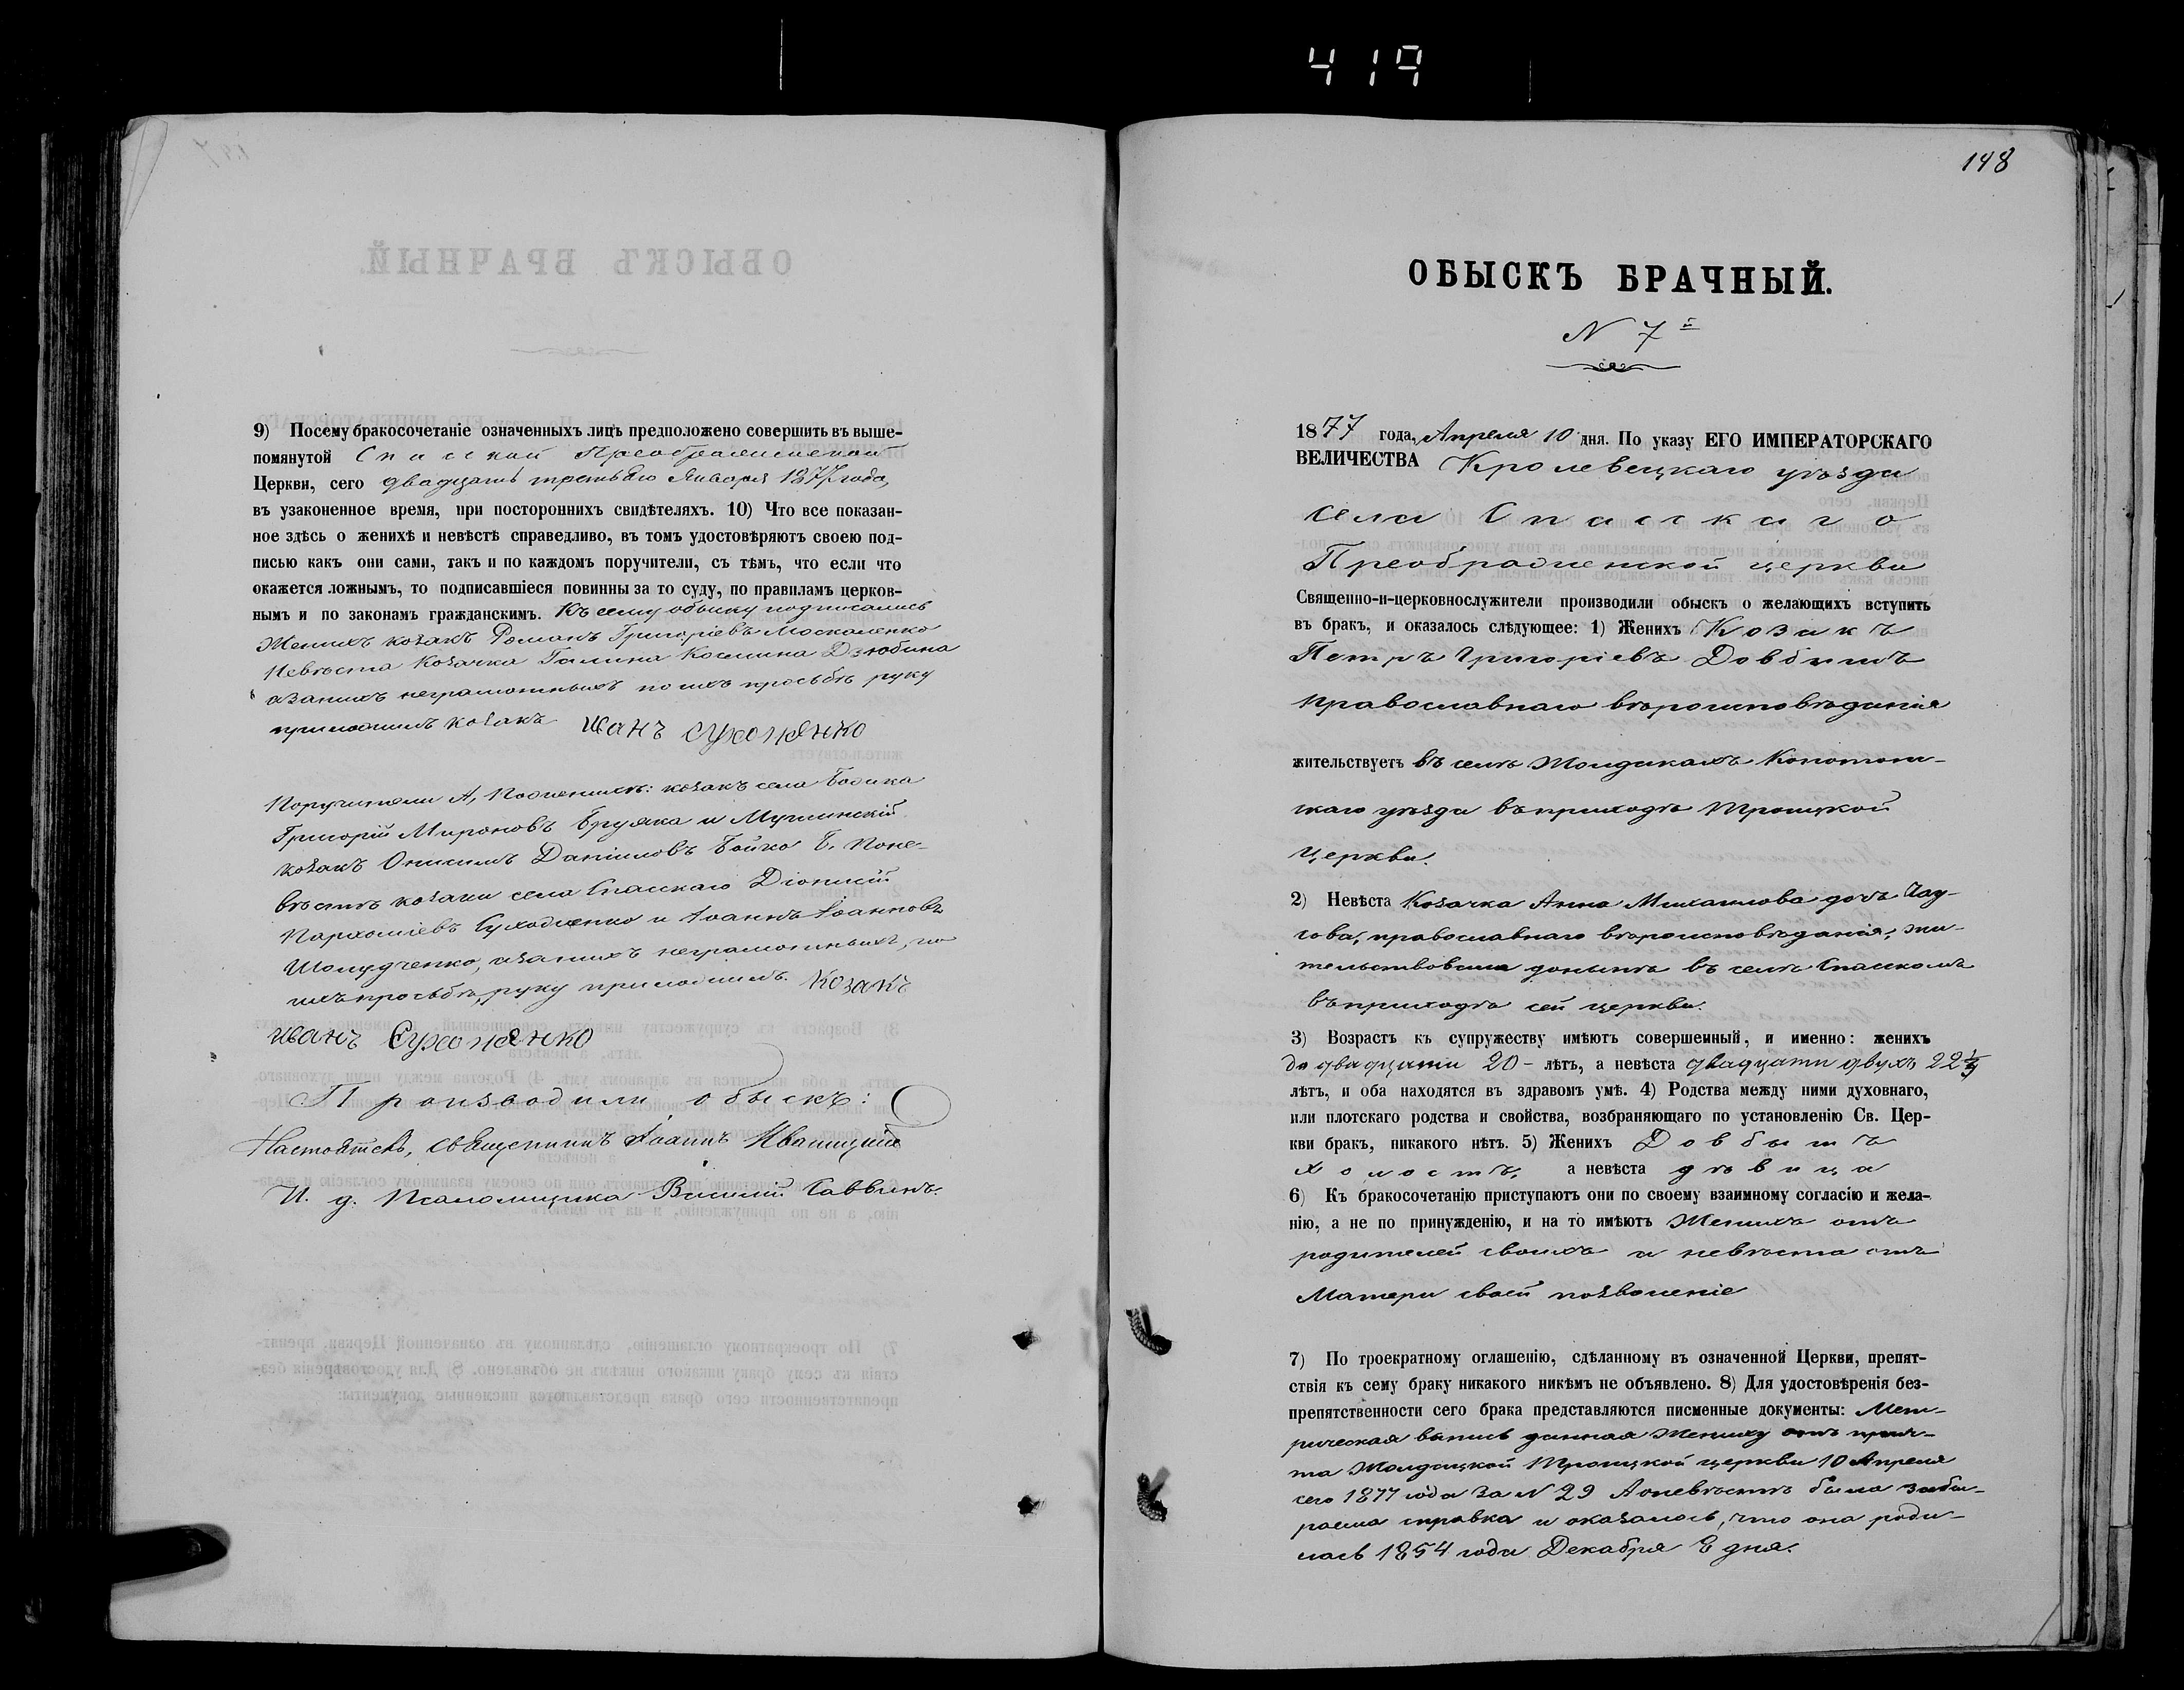 419
9) Посему бракосочетаніе означенныхъ лицъ предположено совершить въ выше-
помянутой Спасской Преображенской
Церкви, сего двадцать третьяго Января 1877 года,
въ узаконенное время, при постороннихъ свидѣтеляхъ. 10) Что все показан-
ное здѣсь о женихѣ и невѣстѣ справедливо, въ томъ удостовѣряютъ своею под-
писью какъ они сами, такъ и по каждомъ поручители, съ тѣмъ, что если что
окажется ложнымъ, то подписавшіеся повинны за то суду, по правиламъ церков-
нымъ и по законамъ гражданскимъ. Къ сему обыску подписались
Женихъ козакъ Романъ Григоріевъ Москаленко
Невѣста Козачка Галина Космина Дзюбина
а за нихъ неграмотныхъ по ихъ просьбѣ руку
приложилъ козакъ иванъ сухоженко
Поручители А, По женихѣ: козакъ села
Григорій Мироновъ и
козакъ Даніиловъ Бойко Б. По не-
вѣстѣ козаки села Спаскаго Діонисій
Пархоміевъ и Іоаннъ Іоанновъ
Шолудченко, а за нихъ неграмотныхъ, по
ихъ просьбѣ, руку приложилъ. Козакъ
иванъ Сухоженко
Производили обыскъ:
Настоятель, священникъ Іоаннъ
И. д. Псаломщика Василій Саввинъ.
148
ОБЫСКЪ БРАЧНЫЙ.
N 7й
1877 года, Апреля 10 дня. По указу ЕГО ИМПЕРАТОРСКАГО
ВЕЛИЧЕСТВА Кролевецкаго уѣзда
села Спасскаго
Преображенской церкви
Священно-и-церковнослужители производили обыскъ о желающихъ вступить
въ бракъ, и оказалось слѣдующее: 1) Женихъ Козакъ
Петръ Григоріевъ Довбышъ
православнаго вѣроисповѣданія
жительствуетъ въ селѣ Жолдакахъ Конотоп-
скаго уѣзда въ приходѣ Троицкой
церкви.
2) Невѣста Козачка Анна Михаилова дочь
православнаго вѣроисповѣданія, жи-
тельствовала донынѣ въ селѣ Спасскомъ
въ приходѣ сей церкви.
3) Возрастъ къ супружеству имѣютъ совершенный, и именно: женихъ
двадцати 20 - лѣтъ, а невѣста двадцати двухъ 22
лѣтъ, и оба находятся въ здравомъ умѣ. 4) Родства между ними духовнаго,
или плотскаго родства и свойства, возбраняющаго по установленію Св. Цер-
кви бракъ, никакого нѣтъ. 5) Женихъ Довбышъ
холостъ, а невѣста дѣвица
6) Къ бракосочетанію приступаютъ они по своему взаимному согласію и жела-
нію, а не по принужденію, и на то имѣютъ Женихъ отъ
родителей своихъ и невѣста отъ
Матери своей позволеніе
7) По троекратному оглашенію, сдѣланному въ означенной Церкви, препят-
ствія къ сему браку никакого никѣмъ не объявлено. 8) Для удостовѣренія без-
препятственности сего брака представляются писменные документы: Мет-
рическая выпись данная Жениху отъ прич-
та Жолдацкой Троицкой церкви 10 Апреля
сего 1877 года за N 29 А о невѣстѣ была забы-
раема справка и оказалось, что она роди-
лась 1854 года Декабря 8 дня.